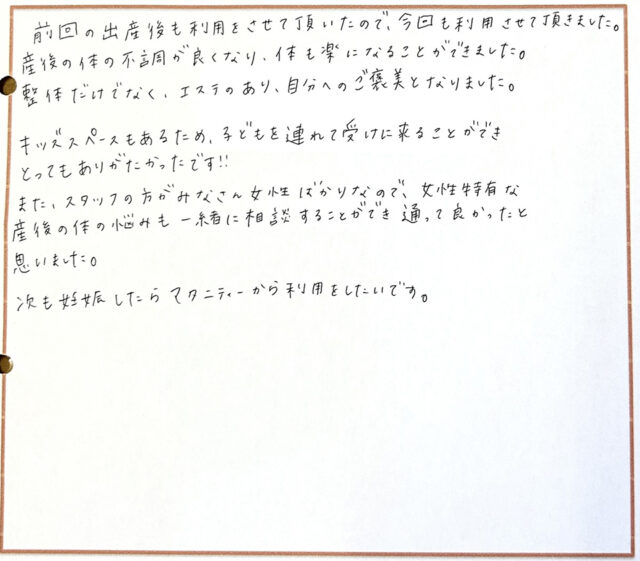 前回の出産後も利用をさせて頂いたので、今回も利用させて頂きました。
産後の体の不調が良くなり、体も楽になることができました。
整体だけでなく、エステのあり、自分へのご褒美となりました。
キッズスペースもあるため、子どもを連れて受けに来ることができ
とってもありがたかったです!!
また、スタッフの方がみなさん女性ばかりなので、女性特有な
産後の体の悩みも一緒に相談することができ通って良かったと
思いました。
次も妊娠したらマタニティーから利用をしたいです。